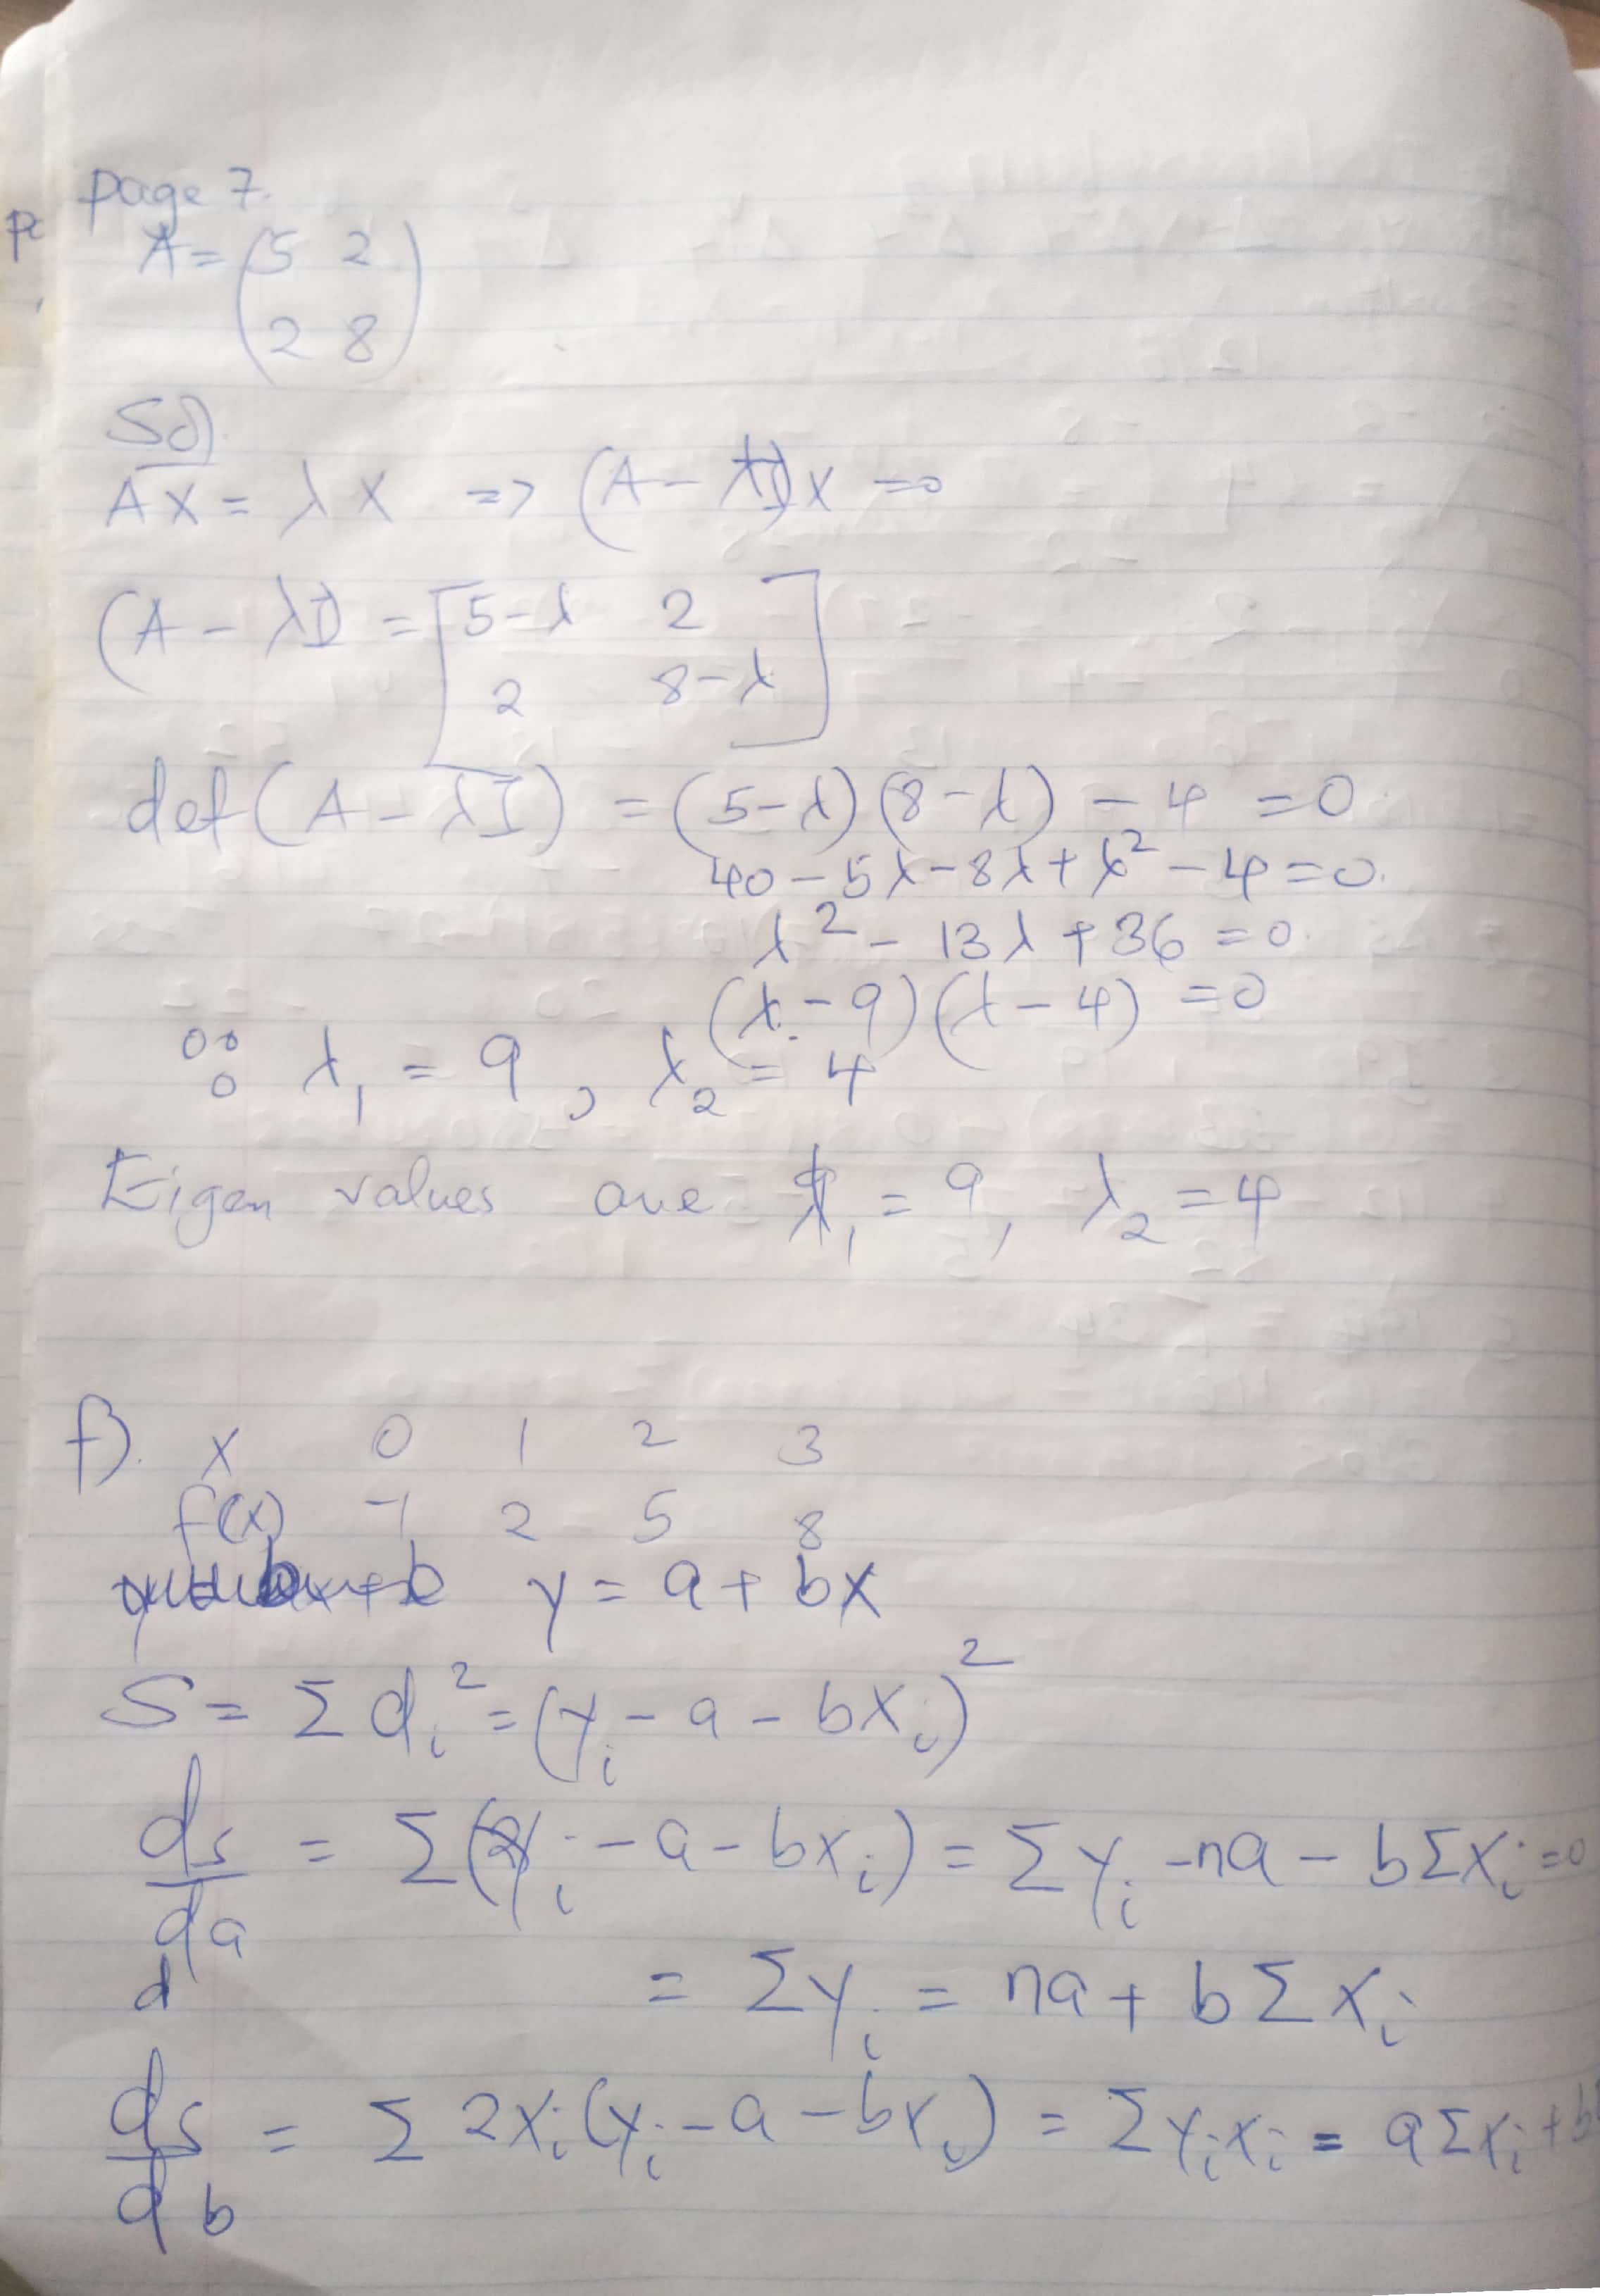 page 7.
A = (5 2
2 8)
Sol
AX = λX => (A - λI)X = 0
(A - λI) = [5-λ 2
2 8-λ]
det(A - λI) = (5-λ)(8-λ) - 4 = 0
40 - 5λ - 8λ + λ² - 4 = 0.
λ² - 13λ + 36 = 0.
(λ - 9)(λ - 4) = 0
∴ λ₁ = 9, λ₂ = 4
Eigen values are λ₁ = 9, λ₂ = 4
f). x 0 1 2 3
f(x) -1 2 5 8
y = a + bx
S = Σdᵢ² = (yᵢ - a - bxᵢ)²
ds/da = Σ(yᵢ - a - bxᵢ) = Σyᵢ - na - bΣxᵢ = 0
d
= Σyᵢ = na + bΣxᵢ
ds/db = Σ2xᵢ(yᵢ - a - bxᵢ) = Σyᵢxᵢ = aΣxᵢ + b